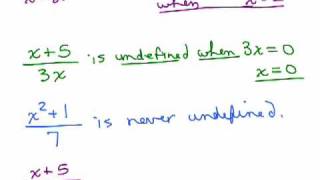 when
x+5/3x is undefined when 3x=0
x=0
x²+1/7 is never undefined.
x+5